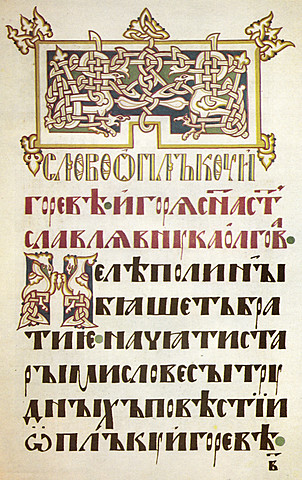 СЛОВО Ѡ ПЛЪКꙊ И
ГОРЕВѢ · ИГОРѦ СН҃А СТ҃
СЛАВЛѦ ВНꙊКА ОЛГОВА ·
НЕ ЛѢПО ЛИ НЫ
БꙖШЕТЬ БРА
ТИЕ · НАЧꙖТИ СТА
РЫМИ СЛОВЕСЫ ТРꙊ
ДНЫХЪ ПОВѢСТІЙ
Ѡ ПЛЪКꙊ ИГОРЕВѢ ·
В҃